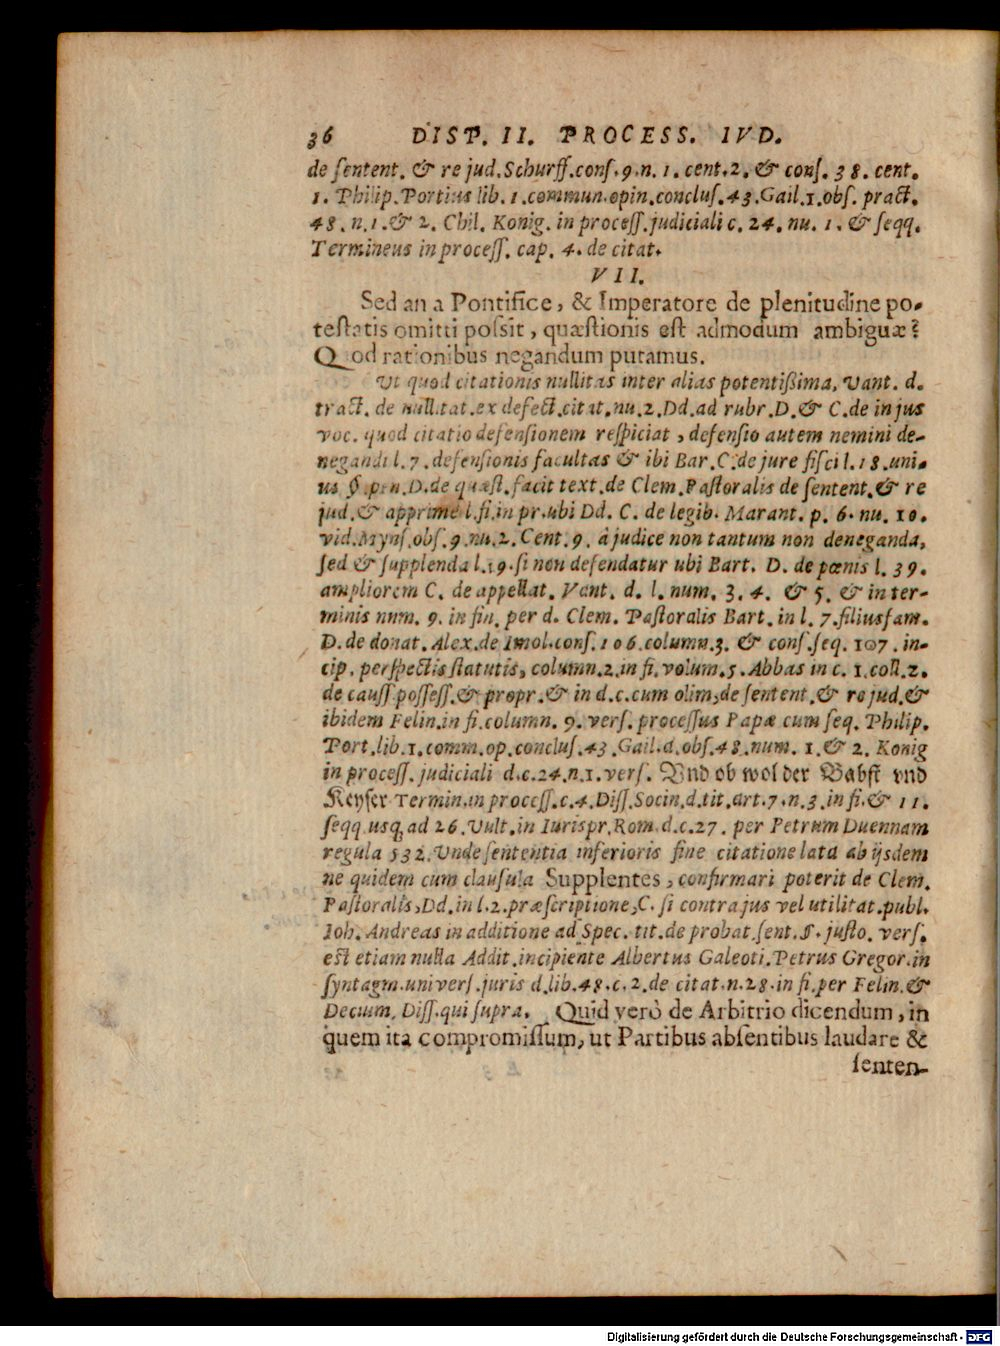 36 DISP. II. PROCESS. IVD.
de ſentent. & re jud. Schurff. conſ. 9. n. 1. cent. 2. & conſ. 38. cent.
1. Philip. Portius lib. 1. commun. opin. concluſ. 43. Gail. 1. obſ. pract.
48. n. 1. & 2. Chil. Konig. in proceſſ. judiciali c. 24. nu. 1. & ſeqq.
Termineus in proceſſ. cap. 4. de citat.
VII.
Sed an a Pontifice, & Imperatore de plenitudine po-
teſtatis omitti poſsit, quæſtionis eſt admodum ambiguæ?
Quod rationibus negandum putamus.
Ut quod citationis nullitas inter alias potentißima, Vant. d.
tract. de nullitat. ex defect. citat. nu. 2. Dd. ad rubr. D. & C. de in jus
voc. quod citatio defenſionem reſpiciat, defenſio autem nemini de-
negandi l. 7. defenſionis facultas & ibi Bar. C. de jure fiſci l. 18. uni-
us §. pen. D. de quæſt. facit text. de Clem. Paſtoralis de ſentent. & re
jud. & apprime l. fi. in pr. ubi Dd. C. de legib. Marant. p. 6. nu. 10.
vid. Mynſ. obſ. 9. nu. 2. Cent. 9. à judice non tantum non deneganda,
ſed & ſupplenda l. 19. ſi non defendatur ubi Bart. D. de pœnis l. 39.
ampliorem C. de appellat. Vant. d. l. num. 3. 4. & 5. & in ter-
minis num. 9. in fin. per d. Clem. Paſtoralis Bart. in l. 7. filiusfam.
D. de donat. Alex. de Imol. conſ. 106. column. 3. & conſ. ſeq. 107. in-
cip. perſpectis ſtatutis, column. 2. in fi. volum. 5. Abbas in c. 1. coll. 2.
de cauſſ. poſſeſſ. & propr. & in d. c. cum olim, de ſentent. & re jud. &
ibidem Felin. in fi. column. 9. verſ. proceſſus Papæ cum ſeq. Philip.
Port. lib. 1. comm. op. concluſ. 43. Gail. d. obſ. 48. num. 1. & 2. Konig
in proceſſ. judiciali d. c. 24. n. 1. verſ. Vnd ob wol der Babſt vnd
Keyſer Termin. in proceſſ. c. 4. Diſſ. Socin. d. tit. art. 7. n. 3. in fi. & 11.
ſeqq. usq; ad 26. Vult. in Iurispr. Rom. d. c. 27. per Petrum Duennam
regula 532. Unde ſententia inferioris ſine citatione lata ab ijsdem
ne quidem cum clauſula Supplentes, confirmari poterit de Clem.
Paſtoralis, Dd. in l. 2. præſcriptione, C. ſi contra jus vel utilitat. publ.
Joh. Andreas in additione ad Spec. tit. de probat. ſent. §. juſto. verſ.
eſt etiam nulla Addit. incipiente Albertus Galeoti. Petrus Gregor. in
ſyntagm. univerſ. juris d. lib. 48. c. 2. de citat. n. 28. in fi. per Felin. &
Decium, Diſſ. qui ſupra. Quid verò de Arbitrio dicendum, in
quem ita compromiſſum, ut Partibus abſentibus laudare &
ſenten-
Digitalisierung gefördert durch die Deutsche Forschungsgemeinschaft - DFG